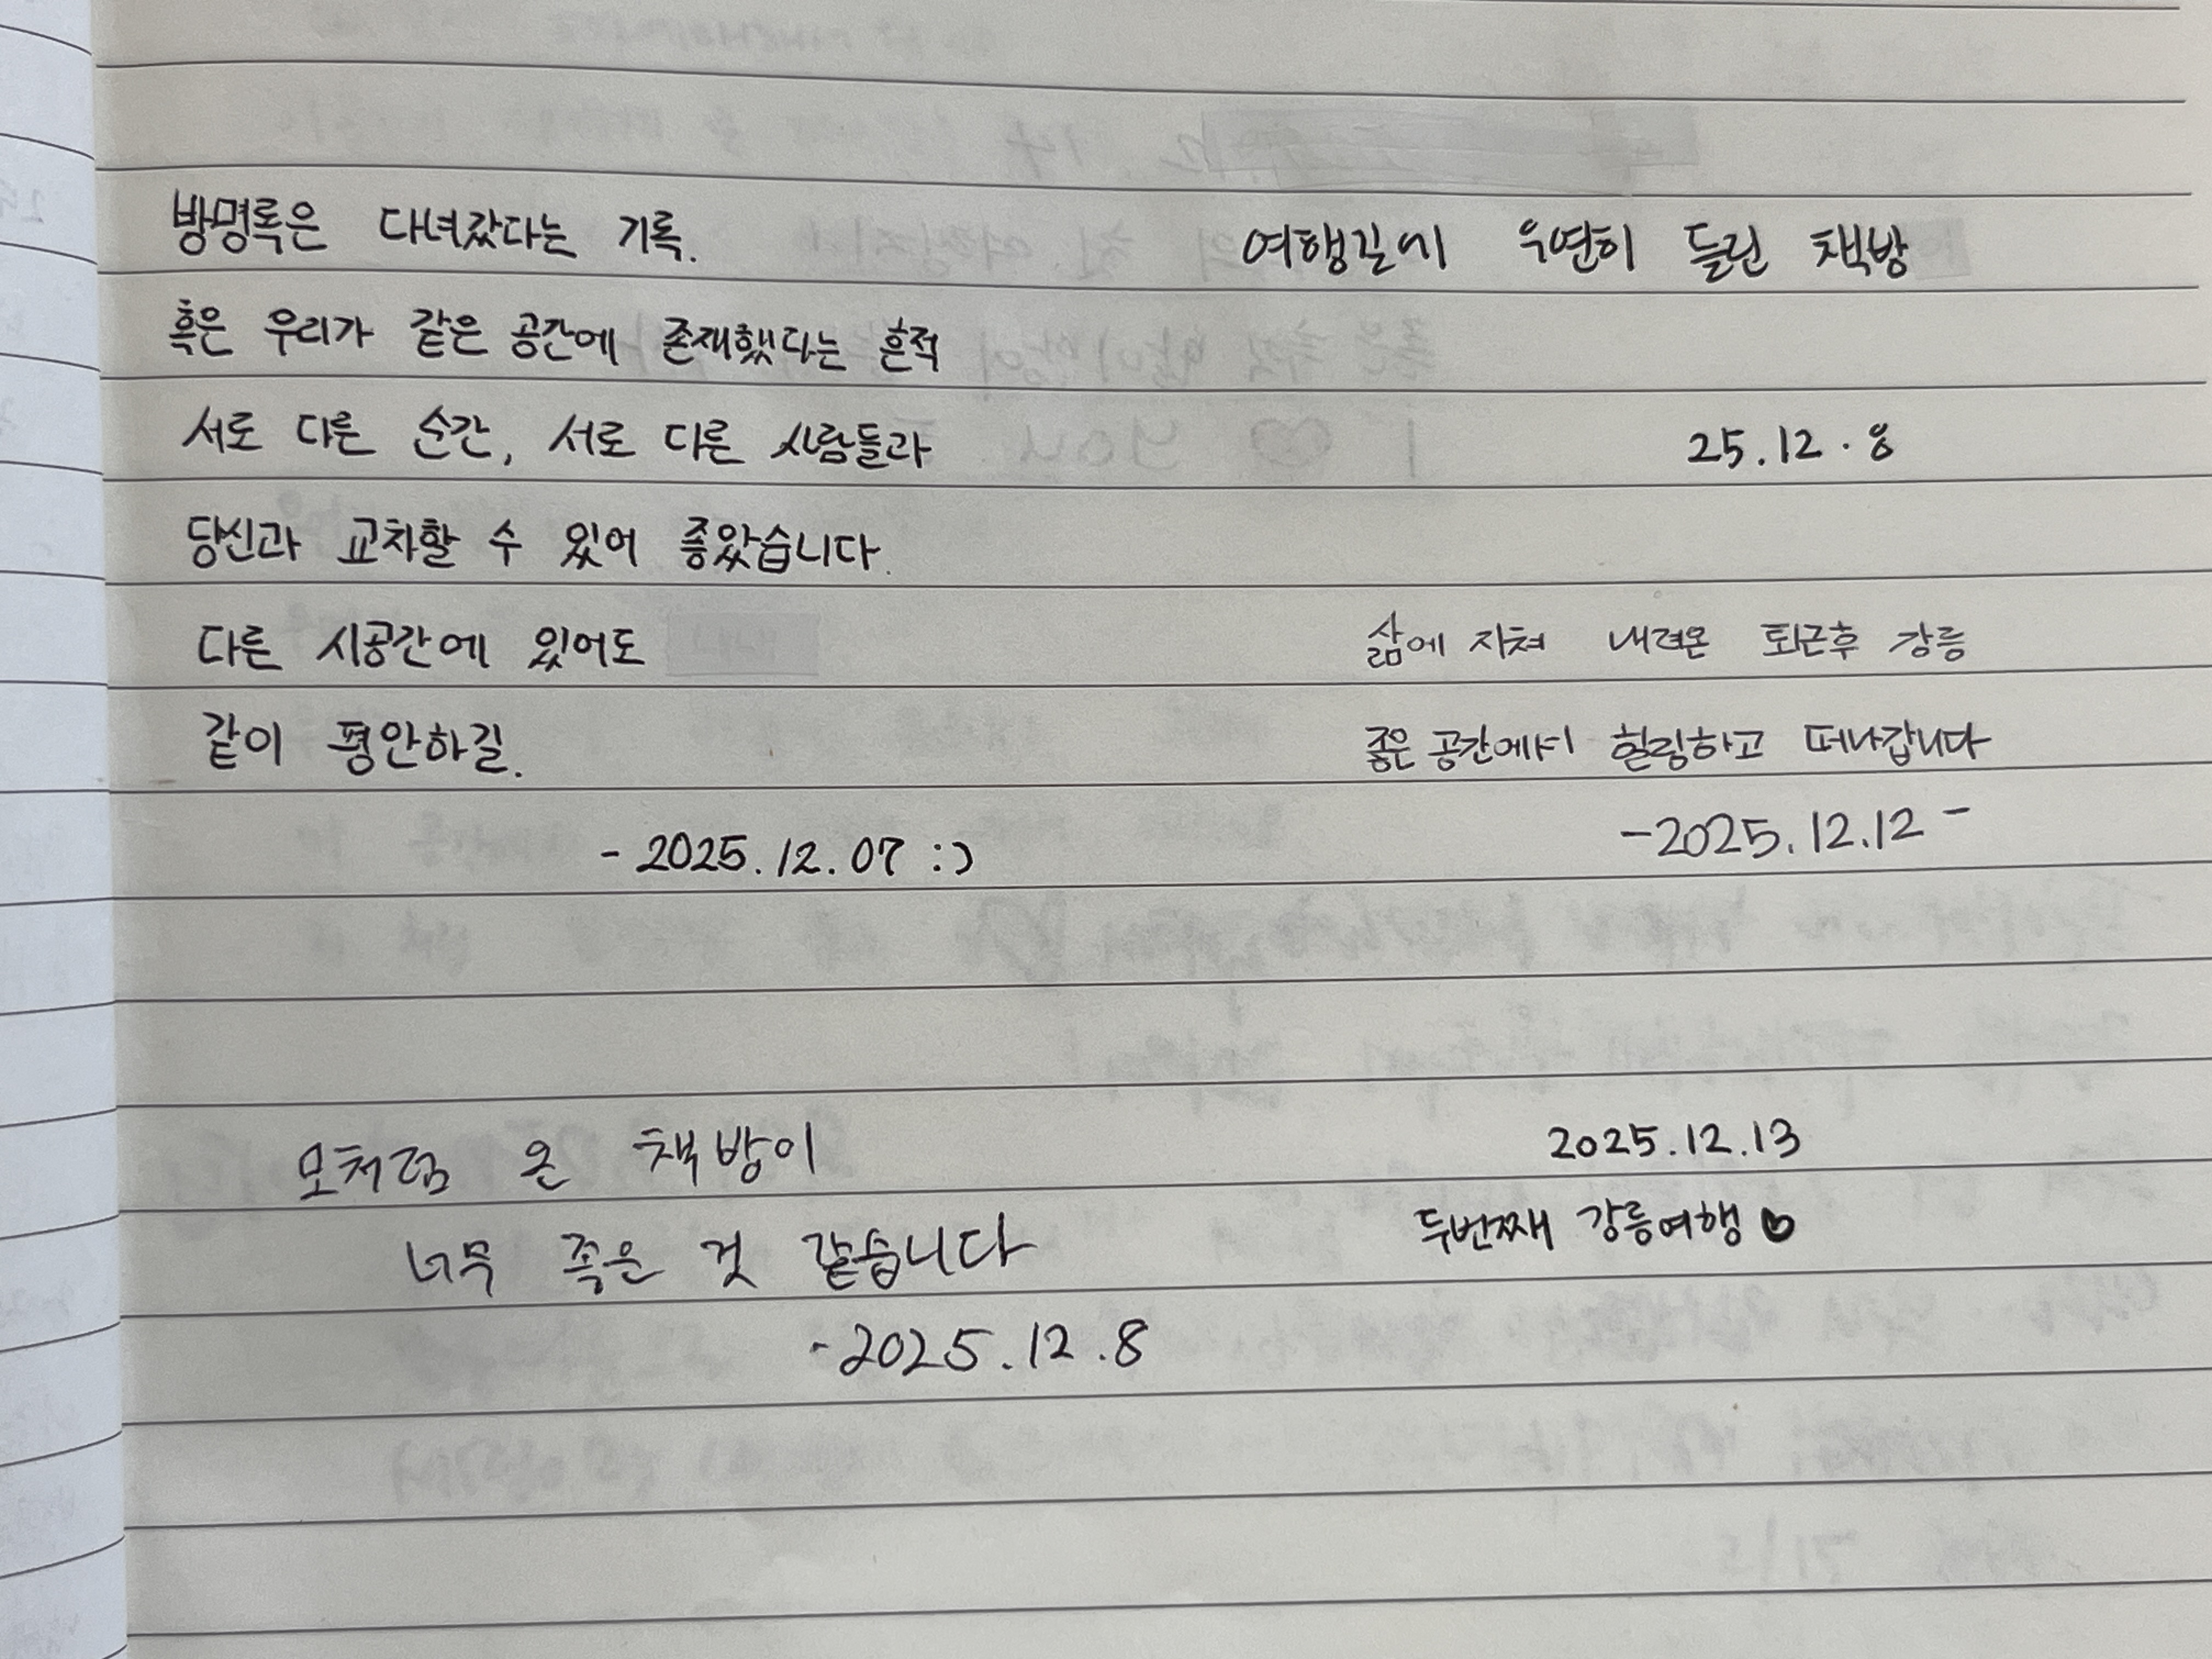 방명록은 다녀갔다는 기록.
혹은 우리가 같은 공간에 존재했다는 흔적
서로 다른 순간, 서로 다른 사람들과
당신과 교차할 수 있어 좋았습니다.
다른 시공간에 있어도
같이 평안하길.
- 2025.12.07 :)
모처럼 온 책방이
너무 좋은 것 같습니다
- 2025.12.8
여행길에 우연히 들린 책방
25.12.8
삶에 지쳐 내려온 퇴근후 강릉
좋은 공간에서 힐링하고 떠나갑니다
-2025.12.12-
2025.12.13
두번째 강릉여행 ♥